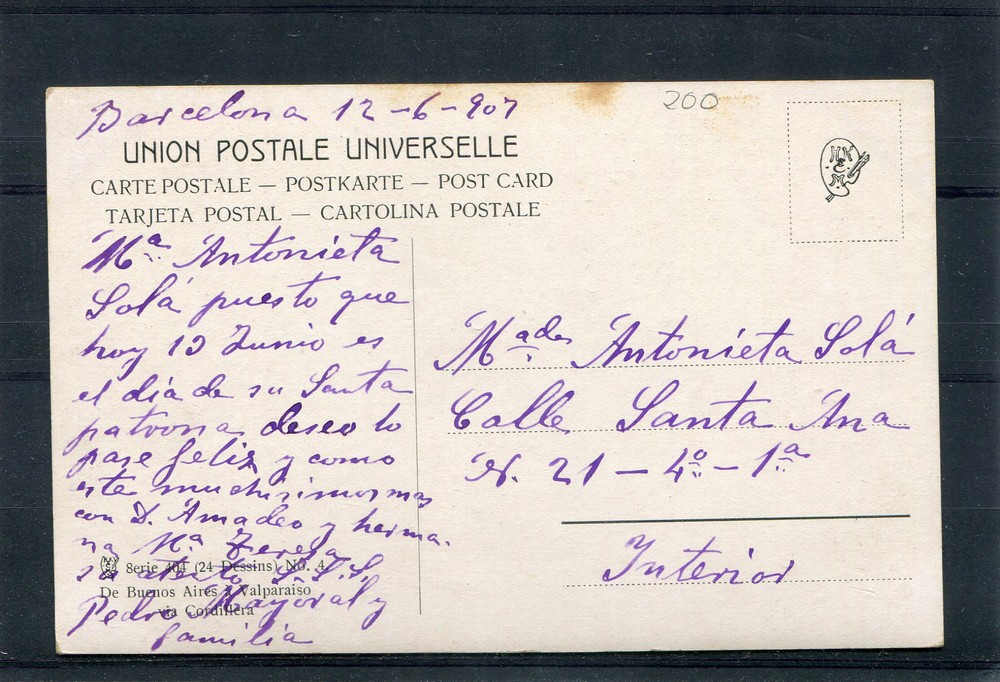 Barcelona 12-6-907
200
UNION POSTALE UNIVERSELLE
CARTE POSTALE — POSTKARTE — POST CARD
TARJETA POSTAL — CARTOLINA POSTALE
HK & M.
Mª Antonieta
Solá puesto que
hoy 13 Junio es
el día de su Santa
patrona deseo lo
pase feliz y como
este muchisimos mas
con D. Amadeo y herma-
na Mª Teresa
su atento S.S.S.
Pedro Mayoral y
familia
Serie 404 (24 Dessins) No. 4
De Buenos Aires à Valparaiso
via Cordillera
Antonieta Solá
Calle Santa Ana
N. 21 — 4º — 1ª
Interior